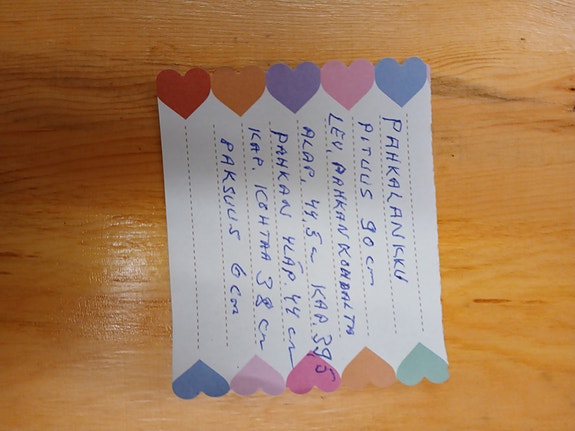 PAHKALANKKU
PITUUS 90 cm
LEV. PAHKAN KOHDALTA
ALAP. 44,5 cm KAP. 39,5
PAHKAN YLÄP. 44 cm
KAP. KOHTAA 38 cm
PAKSUUS 6 cm